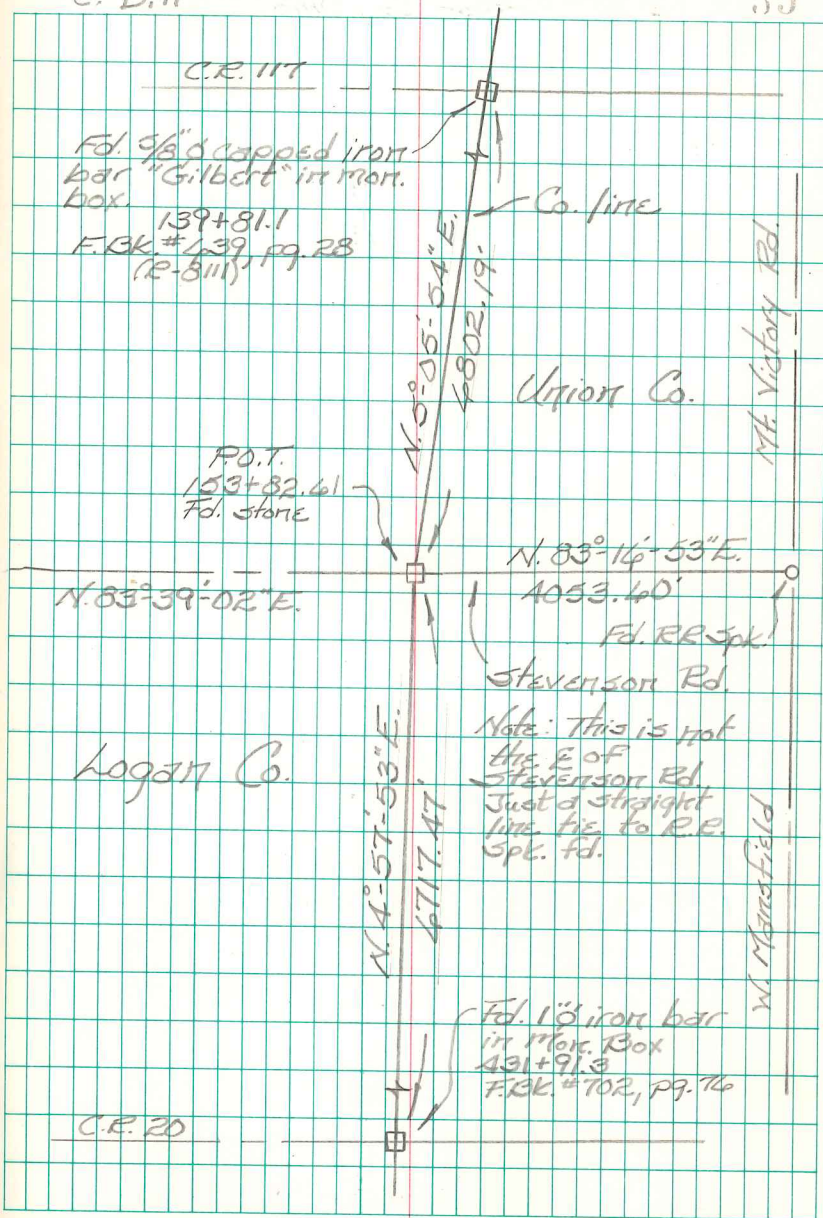 C.R. 117
Fd. 5/8"ø capped iron
bar "Gilbert" in mon.
box.
139+81.1
F.BK. #439, pg. 28
(R-8111)
Co. line
N. 5°-05'-54" E.
4802.19'
Union Co.
Mt. Victory Rd.
P.O.T.
153+82.61
Fd. stone
N. 83°-16'-53" E.
4053.60'
N. 83°-39'-02" E.
Fd. RR Spk.
Stevenson Rd.
Note: This is not
the ℄ of
Stevenson Rd.
Just a straight
line tie to R.R.
Spk. fd.
Logan Co.
N. 4°-57'-53" E.
4717.47'
W. Mansfield
Fd. 1"ø iron bar
in Mon. Box
431+91.3
F.BK. #702, pg. 76
C.R. 20